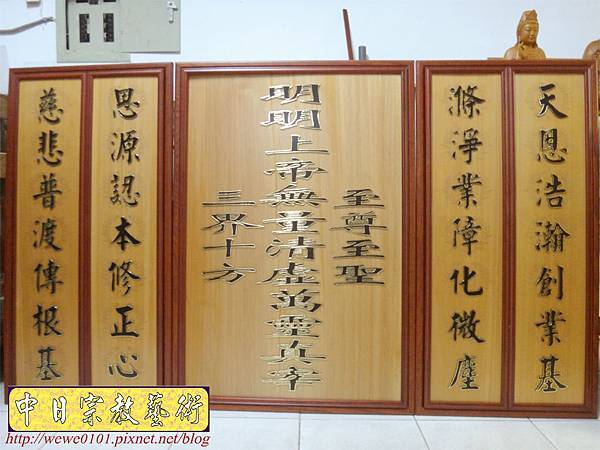 天恩浩瀚創業基
滌淨業障化微塵
至尊至聖
明明上帝無量清虛萬靈真宰
三界十方
恩源認本修正心
慈悲普渡傳根基
中日宗教藝術
http://wewe0101.pixnet.net/blog